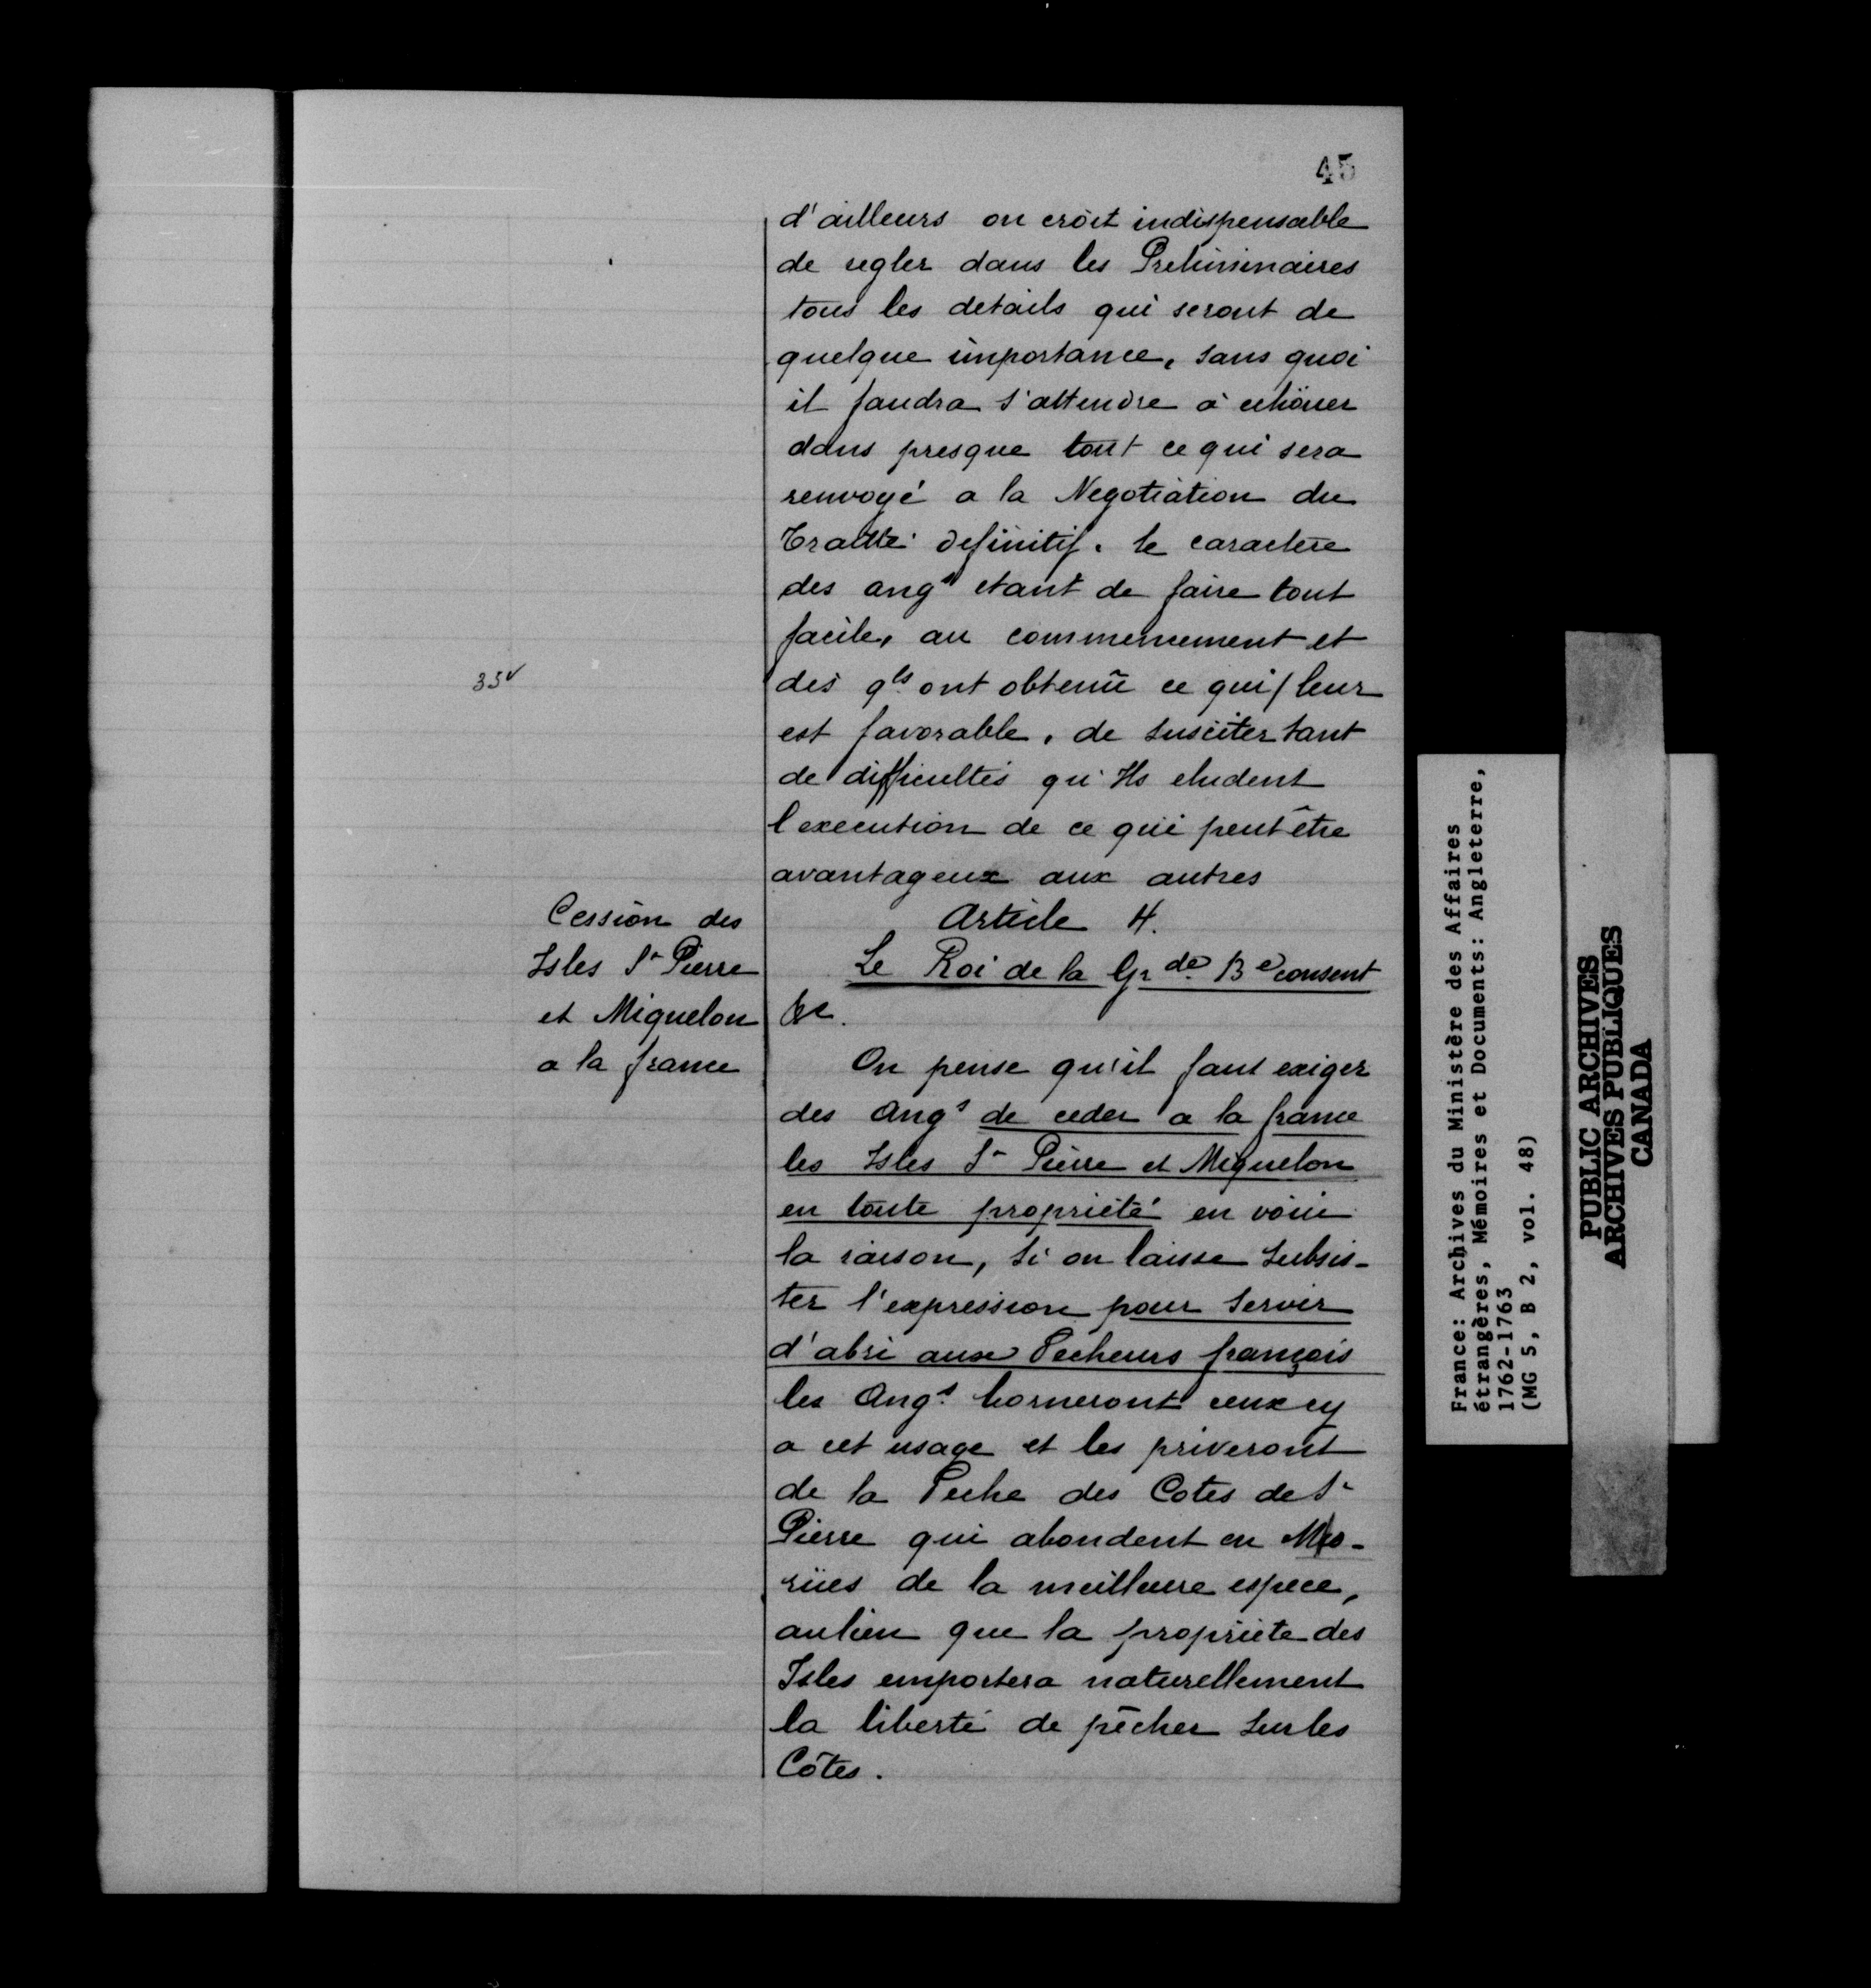 45
d'ailleurs on croit indispensable
de regler dans les Preliminaires
tous les details qui seront de
quelque importance, sans quoi
il faudra s'attendre à echöuer
dans presque tout ce qui sera
renvoyé a la Negotiation du
Traitté definitif. le caractere
des angs etant de faire tout
facile, au commencement et
35v
dés qls ont obtenu ce qui / leur
est favorable, de susciter tant
de difficultés qu'Ils eludent
l'execution de ce qui peut être
avantageux aux autres
Cession des
Isles St Pierre
et Miquelon
a la france
Article 4.
Le Roi de la Grde Be consent
&c.
On pense qu'il faut exiger
des Angs de ceder a la france
les Isles St Pierre et Miquelon
en toute proprieté en voici
la raison, Si on laisse Subsis-
ter l'expression pour Servir
d'abri aux Pecheurs françois
les Angs borneront ceux cy
a cet usage et les priveront
de la Peche des Cotes de St
Pierre qui abondent en Mo-
rües de la meilleure espece,
aulieu que la propriete des
Isles emportera naturellement
la liberté de pêcher Sur les
Côtes.
France: Archives du Ministère des Affaires
étrangères, Mémoires et Documents: Angleterre,
1762-1763
(MG 5, B 2, vol. 48)
PUBLIC ARCHIVES
ARCHIVES PUBLIQUES
CANADA